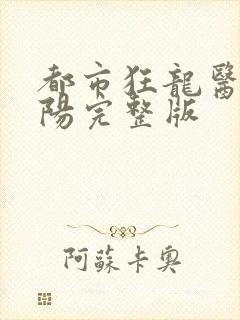 都市狂龍醫
陽完整版
阿蘇卡奧